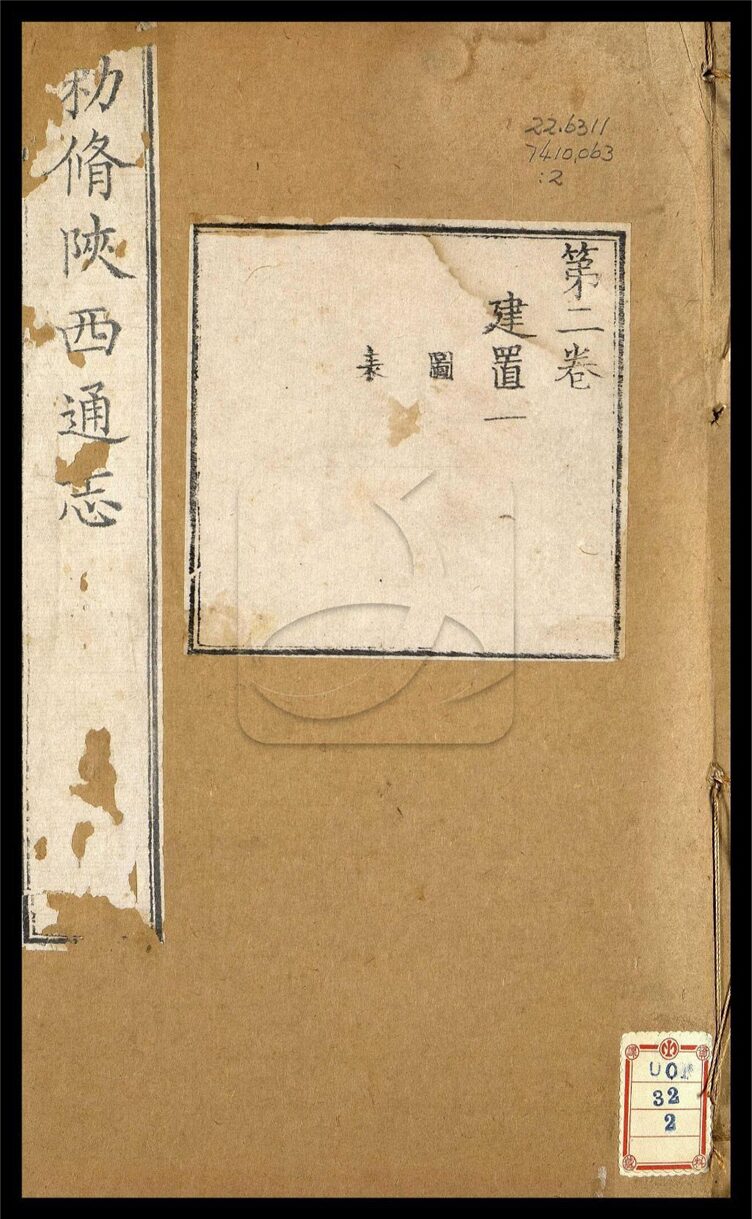 第二卷
建置一
圖
表
勑脩陝西通志
22.6311
7410.063
:2
32
2